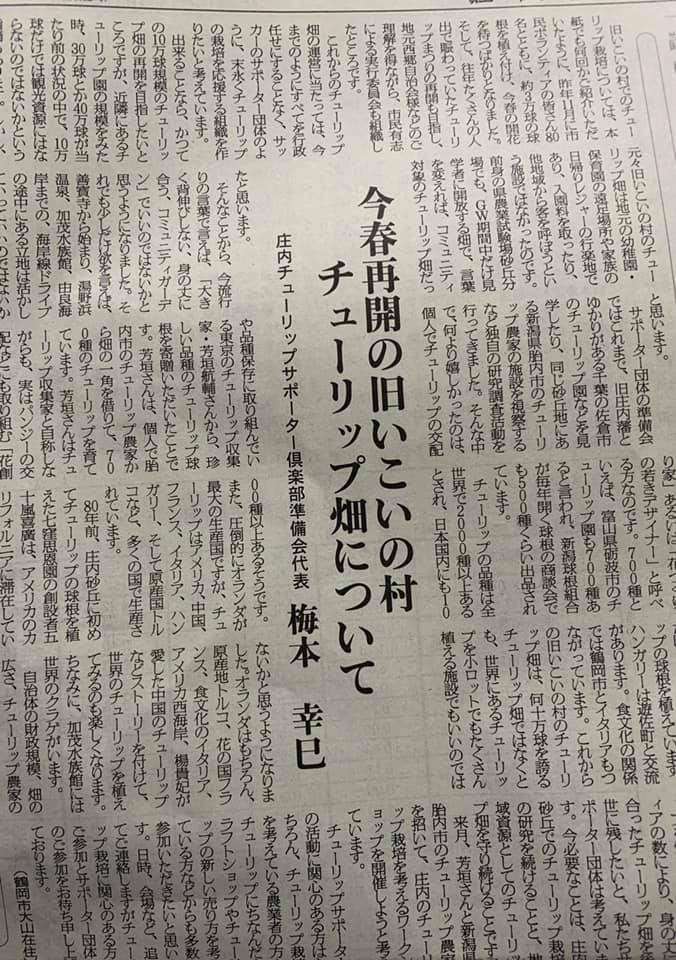 旧いこいの村でのチュー
リップ栽培については、本
紙でも何回かご紹介いただ
いたように、昨年11月に市
民ボランティアの皆さん80
名とともに、約3万球の球
根を植え付け、今春の開花
を待つばかりとなりました。
そして、往年たくさんの人
出で賑わっていたチューリ
ップまつりの再開を目指し、
地元西郷自治会様などのご
理解を得ながら、市民有志
による実行委員会も組織し
たところです。
これからのチューリップ
畑の運営に当たっては、今
までのようにすべてを行政
任せにすることなく、サッ
カーのサポーター団体のよ
うに、末永くチューリップ
の栽培を応援する組織を作
りたいと考えています。
出来ることなら、かつて
の10万球規模のチューリッ
プ畑の再開を目指したいと
ころですが、近隣にあるチ
ューリップ園の規模をみた
時、30万球とか40万球が当
たり前の状況の中で、10万
球だけでは観光資源にはな
らないのではないかという
元々旧いこいの村のチュー
リップ畑は地元の幼稚園・
保育園の遠足場所や家族の
日帰りレジャーの行楽地で
あり、入園料を取ったり、
他地域から客を呼ぼうとい
う施設ではなかったのです。
前身の県農業試験場砂丘分
場でも、GW期間中だけ見
学者に開放する畑で、言葉
を変えれば、コミュニティ
対象のチューリップ畑だっ
今春再開の旧いこいの村
チューリップ畑について
庄内チューリップサポーター倶楽部準備会代表 梅本 幸巳
たと思います。
そんなことから、今流行
りの言葉で言えば、「大き
く背伸びしない、身の丈に
合う、コミュニティガーデ
ン」でいいのではないかと
思うようになりました。そ
れでも少しだけ欲を言えば、
善寳寺から始まり、湯野浜
温泉、加茂水族館、由良海
岸までの、海岸線ドライブ
の途中にある立地は活かし
ていっていいのではないか
と思います。
サポーター団体の準備会
ではこれまで、旧庄内藩と
ゆかりがある千葉の佐倉市
のチューリップ園などを見
学したり、同じ砂丘地にあ
る新潟県胎内市のチューリ
ップ農家の施設を視察する
など独自の研究調査活動を
行ってきました。そんな中
で、何より嬉しかったのは、
個人でチューリップの交配
や品種保存に取り組んでい
る東京のチューリップ収集
家・芳垣航輔さんから、珍
しい品種のチューリップ球
根を寄贈いただいたことで
す。芳垣さんは、個人で胎
内市のチューリップ農家か
ら畑の一角を借りて、70
0種のチューリップを育て
ています。芳垣さんはチュ
ーリップ収集家と自称しな
がらも、実はパンジーの交
配などにも取り組む「花創
り家」あるいは「花づくり
の若きデザイナー」と呼べ
る方なのです。700種と
いえば、富山県砺波市のチ
ューリップ園も700種あ
ると言われ、新潟球根組合
が毎年開く球根の商談会で
も500種くらい出品され
ています。
チューリップの品種は全
世界で2000種以上ある
とされ、日本国内にも10
00種以上あるそうです。
また、圧倒的にオランダが
最大の生産国ですが、チュ
ーリップはアメリカ、中国、
フランス、イタリア、ハン
ガリー、そして原産国トル
コなど、多くの国で生産さ
れています。
80年前、庄内砂丘に初め
てチューリップの球根を植
えた七窪思恩園の創設者五
十嵐喜廣は、アメリカのカ
リフォルニアに滞在してい
ップの球根を植えています。
ハンガリーは遊佐町と交流
があります。食文化の関係
では鶴岡市とイタリアもつ
ながっています。これから
の旧いこいの村のチューリ
ップ畑は、何十万球を誇る
チューリップ畑ではなくと
も、世界にあるチューリッ
プを小ロットでもたくさん
植える施設でもいいのでは
ないかと思うようになりま
した。オランダはもちろん、
原産地トルコ、花の国フラ
ンス、食文化のイタリア、
アメリカ西海岸、楊貴妃が
愛した中国のチューリップ
などとストーリーを付けて、
世界のチューリップを植え
てみるのも楽しくなります。
ちなみに、加茂水族館には
世界のクラゲがいます。
自治体の財政規模、畑の
広さ、チューリップ農家の
ィアの数により、身の丈に
合ったチューリップ畑を後
世に残したいと、私たちサ
ポーター団体は考えていま
す。今必要なことは、庄内
砂丘でのチューリップ栽培
の研究を続けることと、地
域資源としてのチューリッ
プ畑を守り続けることです。
来月、芳垣さんと新潟県
胎内市のチューリップ農家
を招いて、庄内のチューリ
ップ栽培を考えるワークシ
ョップを開催しようと考え
ています。
チューリップサポーター
の活動に関心のある方はも
ちろん、チューリップ栽培
を考えている農業者の方、
チューリップにちなんだク
ラフトショップやチューリ
ップの新しい売り方を考え
ている方などからも多数ご
参加いただきたいと思いま
す。日時、会場など、追っ
てご連絡しますがチューリ
ップ栽培に関心のある方の
ご参加とサポーター団体へ
のご参加をお待ち申し上げ
ております。
(鶴岡市大山在住